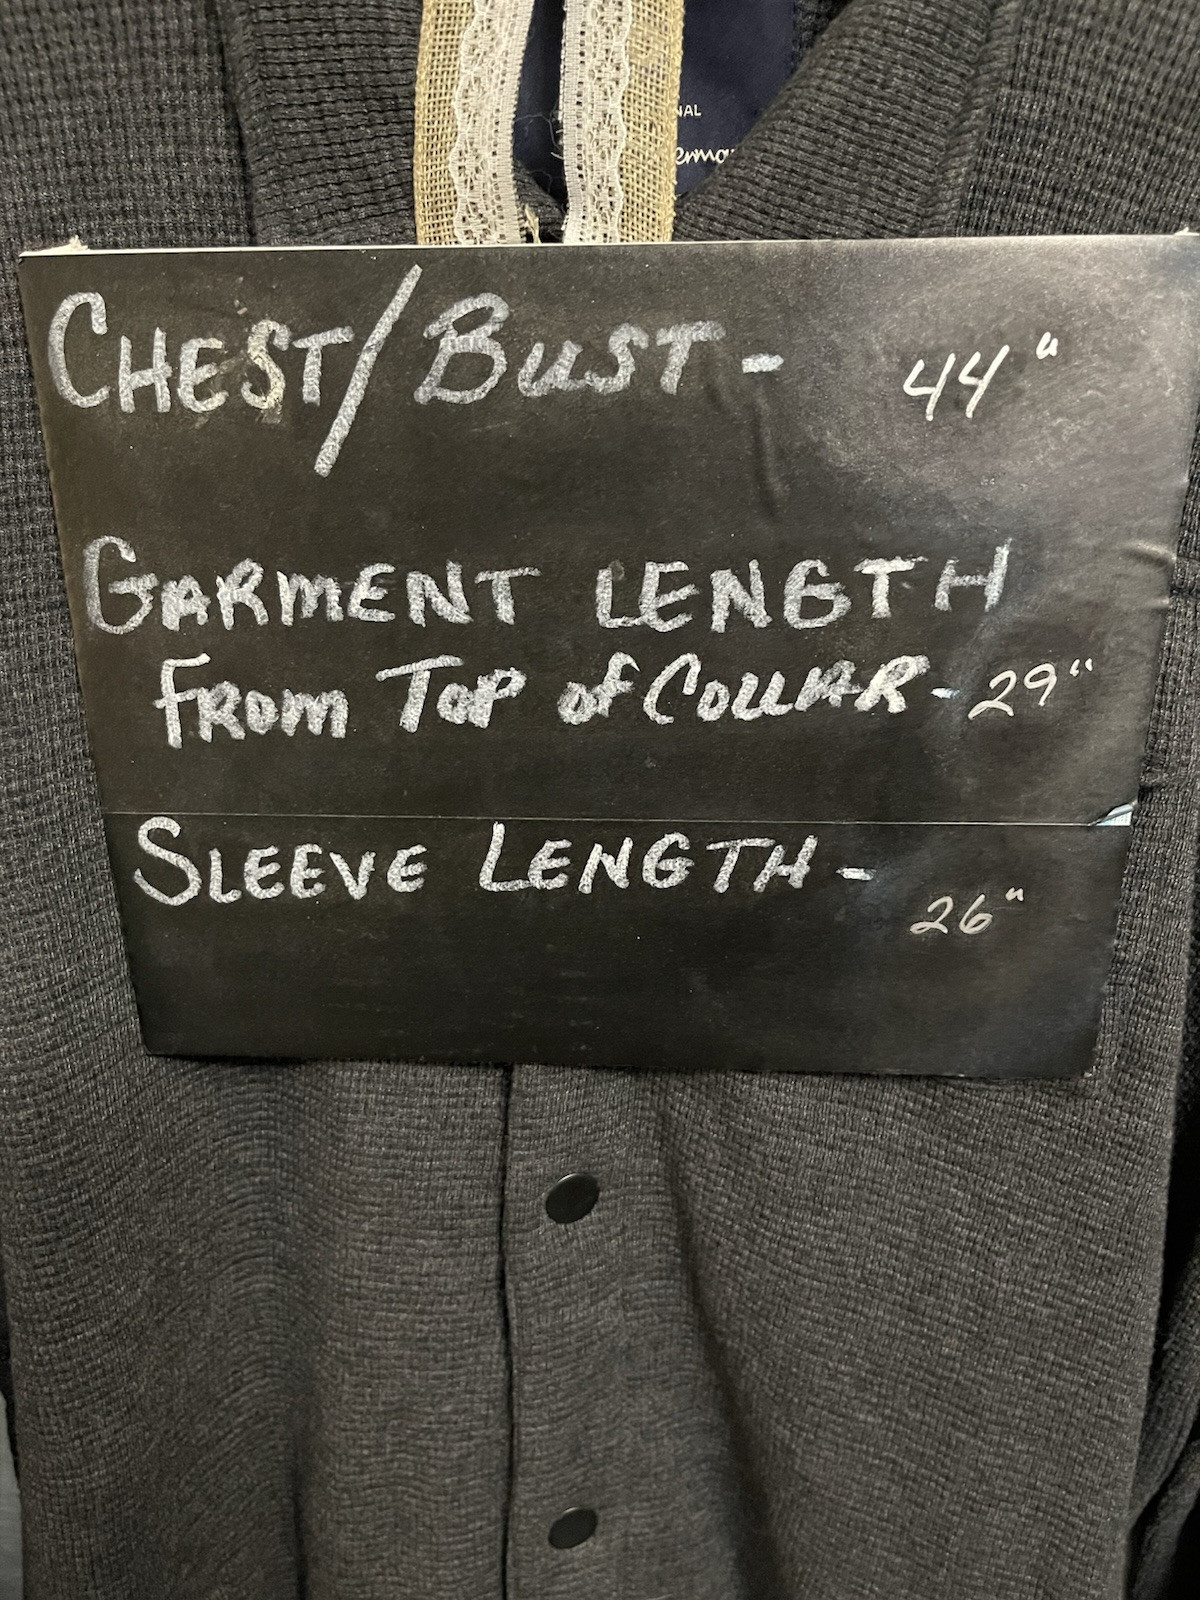 NAL
CHEST/BUST- 44"
GARMENT LENGTH
FROM TOP of COLLAR- 29"
SLEEVE LENGTH-
26"